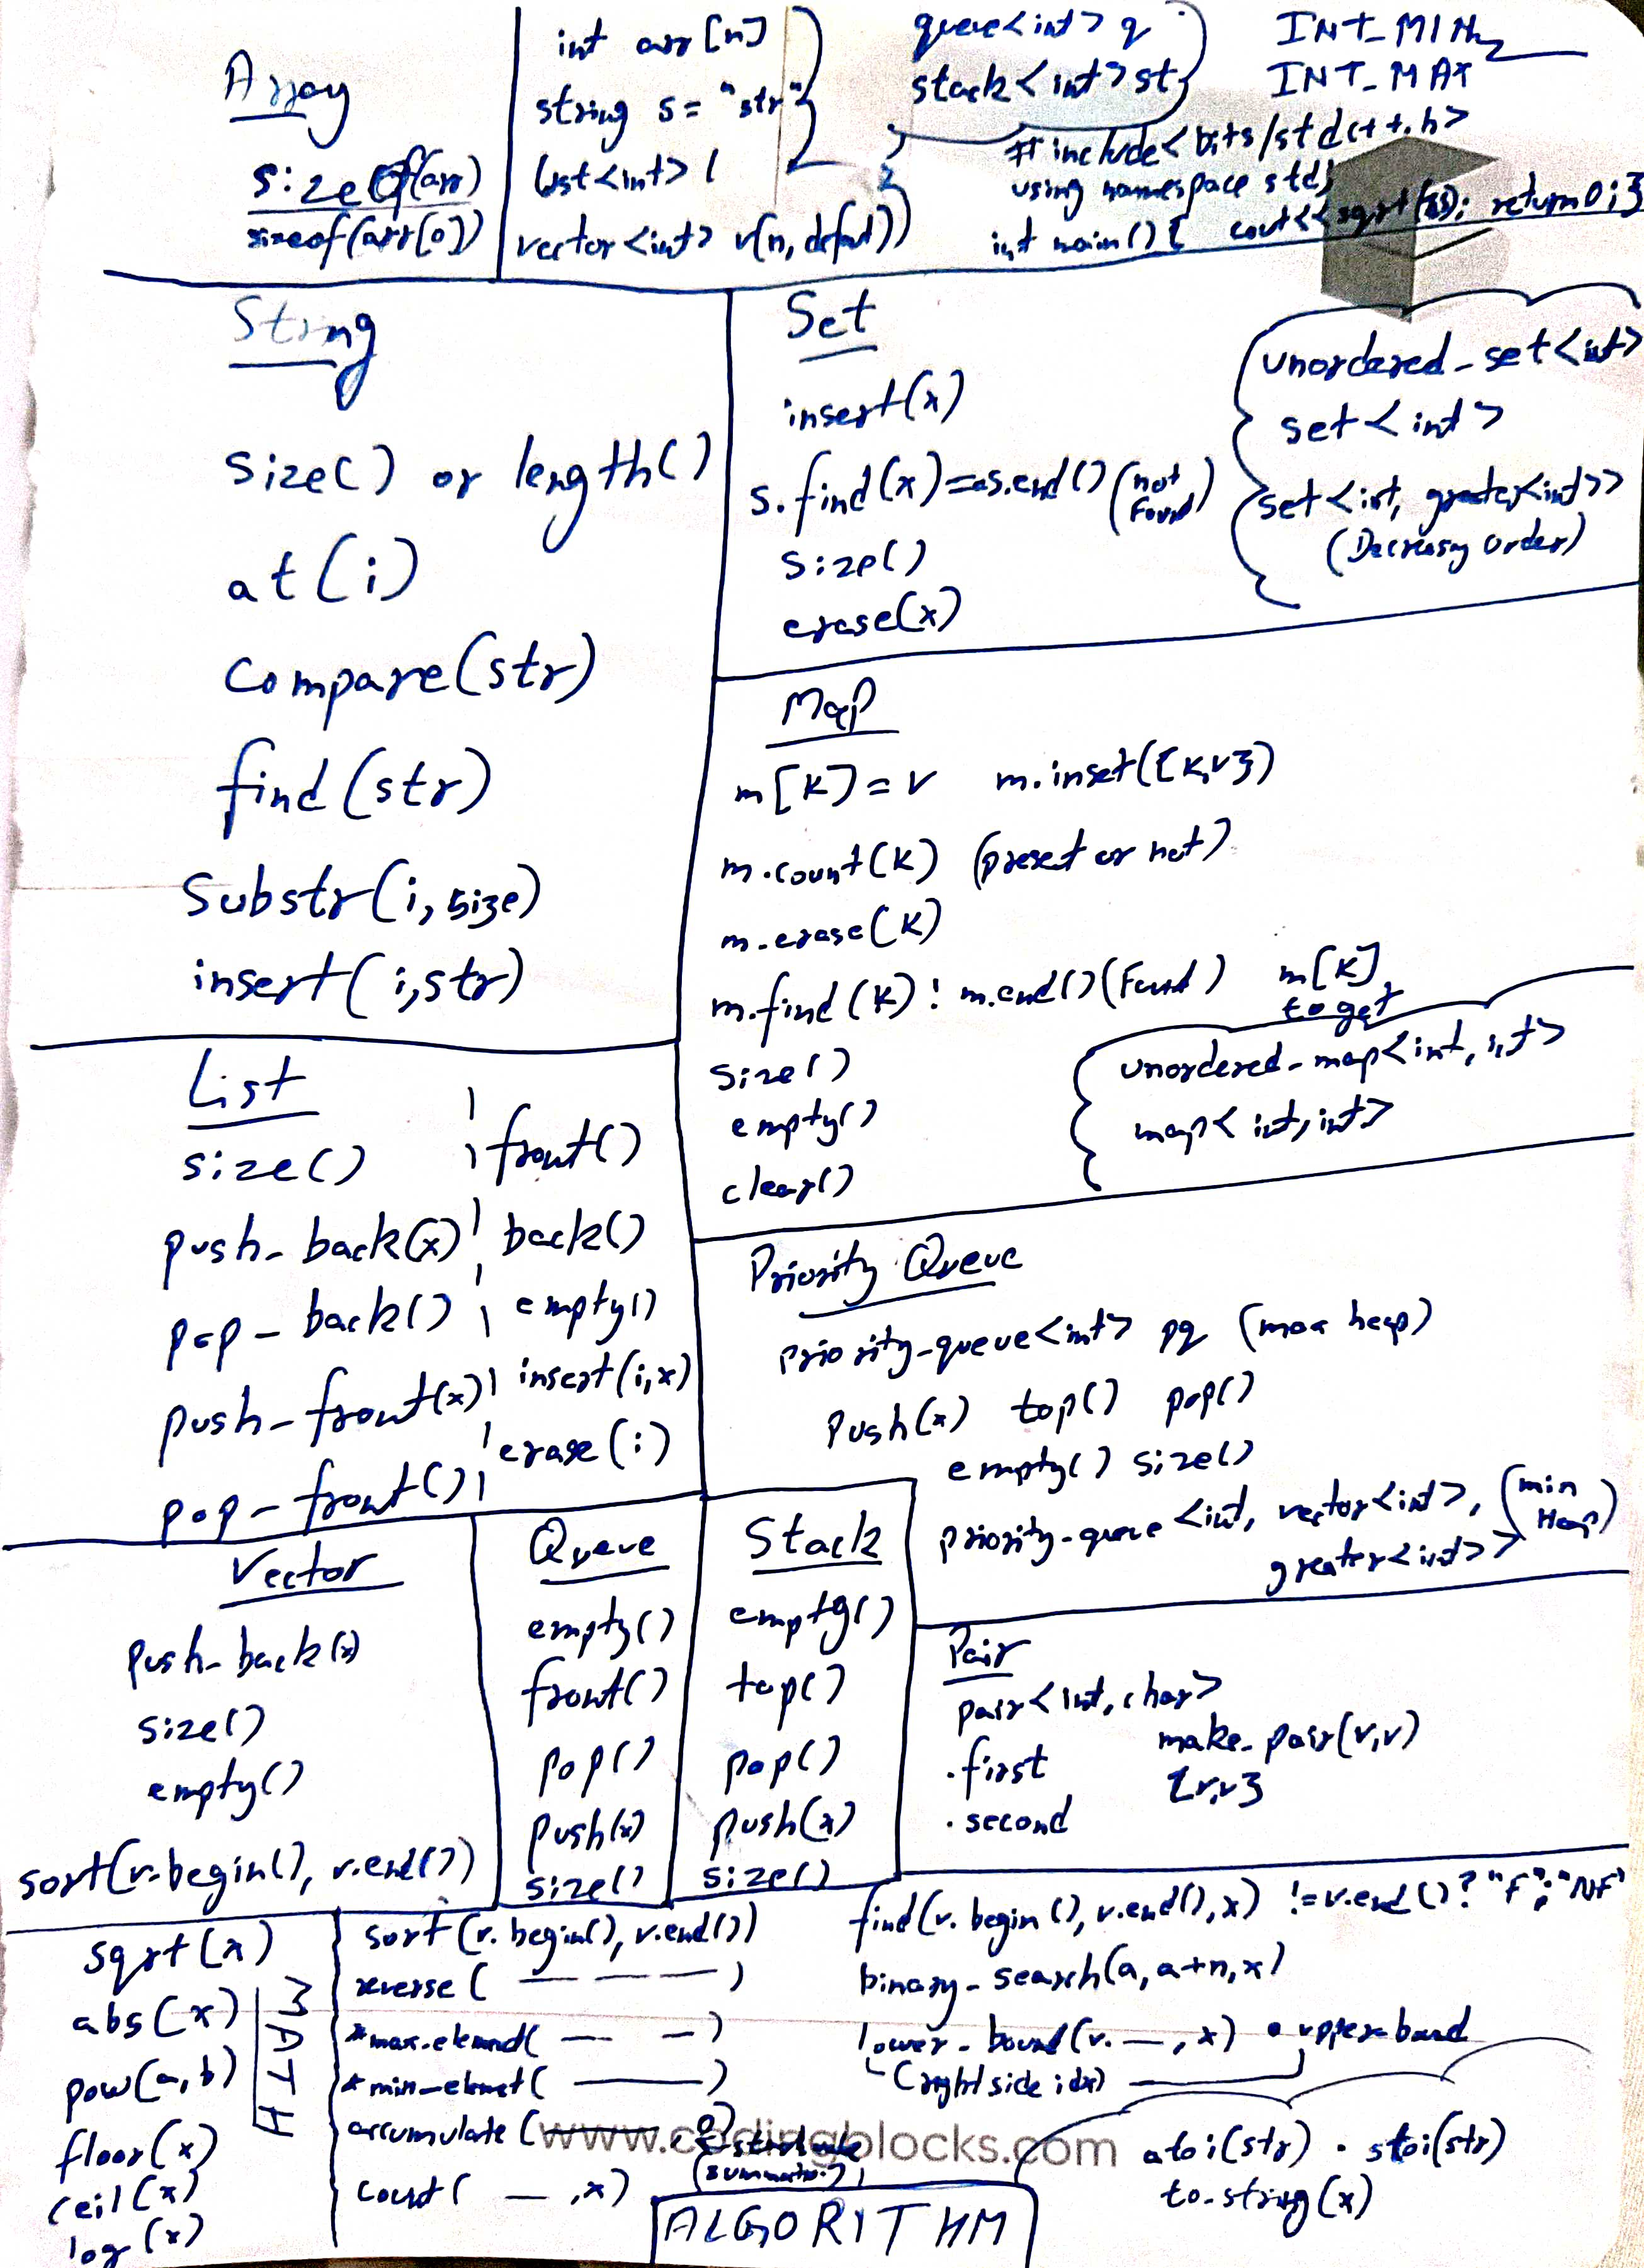 Array
sizeof(arr)
sizeof(arr[0])
int arr[n]
string s= "str"
list<int> l
vector<int> v(n, defaul))
queue<int> q
stack<int> st
INT_MIN
INT_MAX
#include<bits/stdc++.h>
using namespace std;
int main(){ cout<<sqrt( ); return 0;}
String
size() or length()
at(i)
compare(str)
find(str)
substr(i, size)
insert(i,str)
Set
insert(x)
s.find(x)==s.end() (not Found)
size()
erase(x)
unordered_set<int>
set<int>
set<int, greater<int>>
(Decreasing order)
Map
m[K]=v m.inset({K,v})
m.count(K) (preset or not)
m.erase(K)
m.find(K)! m.end() (Found) m[K] to get
size()
empty()
clear()
unordered_map<int, int>
map<int,int>
List
size()
push_back(x)
pop_back()
push_front(x)
pop_front()
front()
back()
empty()
insert(i,x)
erase(i)
Priority Queue
priority_queue<int> pq (max heap)
push(x) top() pop()
empty() size()
priority_queue <int, vector<int>, greater<int>> (min Heap)
Vector
push_back(x)
size()
empty()
sort(v.begin(), v.end())
Queue
empty()
front()
pop()
push(x)
size()
Stack
empty()
top()
pop()
push(x)
size()
Pair
pair<int, char>
.first
.second
make_pair(v,v)
{v,v}
sqrt(x)
abs(x)
pow(a,b)
floor(x)
ceil(x)
log(x)
MATH
sort(v.begin(), v.end())
reverse( — — — )
*max_element( — — )
*min_elemet( —— )
accumulate( ——, 0)
(summation)
count( — ,x)
find(v.begin(), v.end(),x) != v.end()? "F":"NF"
binary_search(a, a+n,x)
lower_bound(v. —, x) • upper bound
(right side idx)
atoi(str) . stoi(str)
to_string(x)
ALGORITHM
www.codingblocks.com